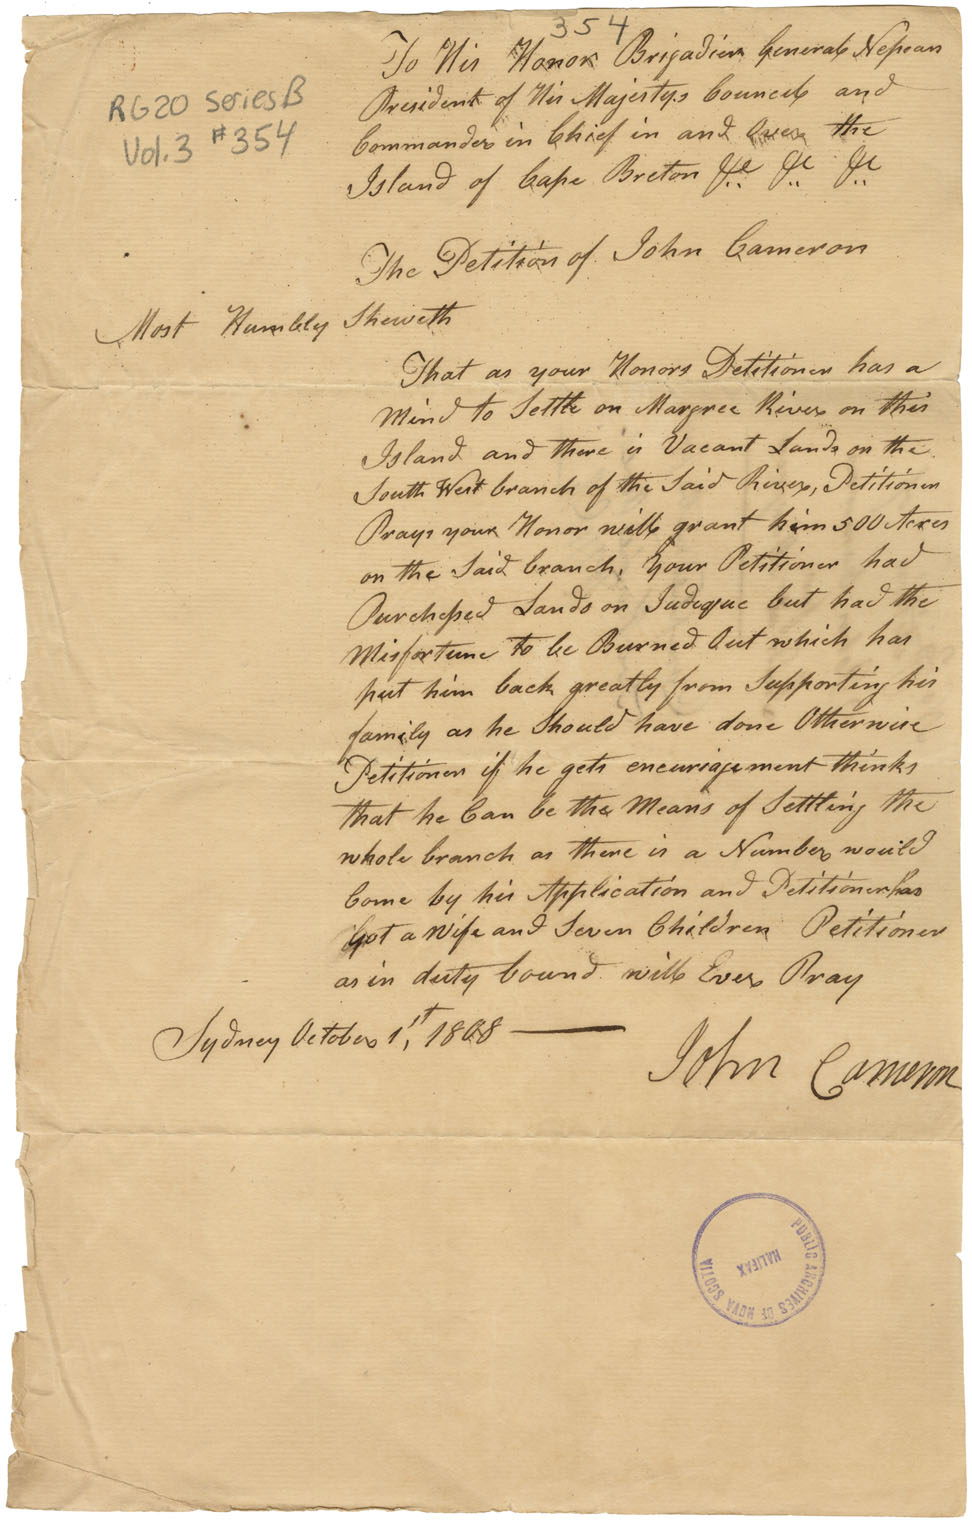 354
RG20 Series B
Vol.3 #354
To His Honor Brigadier General Nepean
President of His Majestys Councel and
Commander in Chief in and Over the
Island of Cape Breton &c &c &c
The Petition of John Cameron
Most Humbly Sheweth
That as your Honors Petitioner has a
Mind to Settle on Margree River on this
Island and there is Vacant Lands on the
South West branch of the Said River, Petitioner
Prays your Honor will grant him 500 Acres
on the Said branch. Your Petitioner had
Purchesed Lands on Judeque but had the
Misfortune to be Burned Out which has
put him back greatly from Supporting his
family as he Should have done Otherwise
Petitioner if he gets encuriagement thinks
that he Can be the Means of Settling the
whole branch as there is a Number would
Come by his Application and Petitioner has
Got a Wife and Seven Children Petitioner
as in duty bound will Ever Pray
Sydney October 1st, 1808
John Cameron
PUBLIC ARCHIVES OF NOVA SCOTIA
HALIFAX